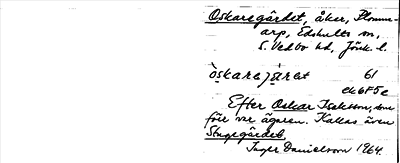 Oskarsgärdet, åker, Plomm-
arp, Edshults sn,
S. Vedbo hd, Jönk. l.
61
ek6F5c
Efter Oskar Isaksson, som
förr var ägaren. Kallas även
Stugegärdet.
Inger Danielsson 1964.